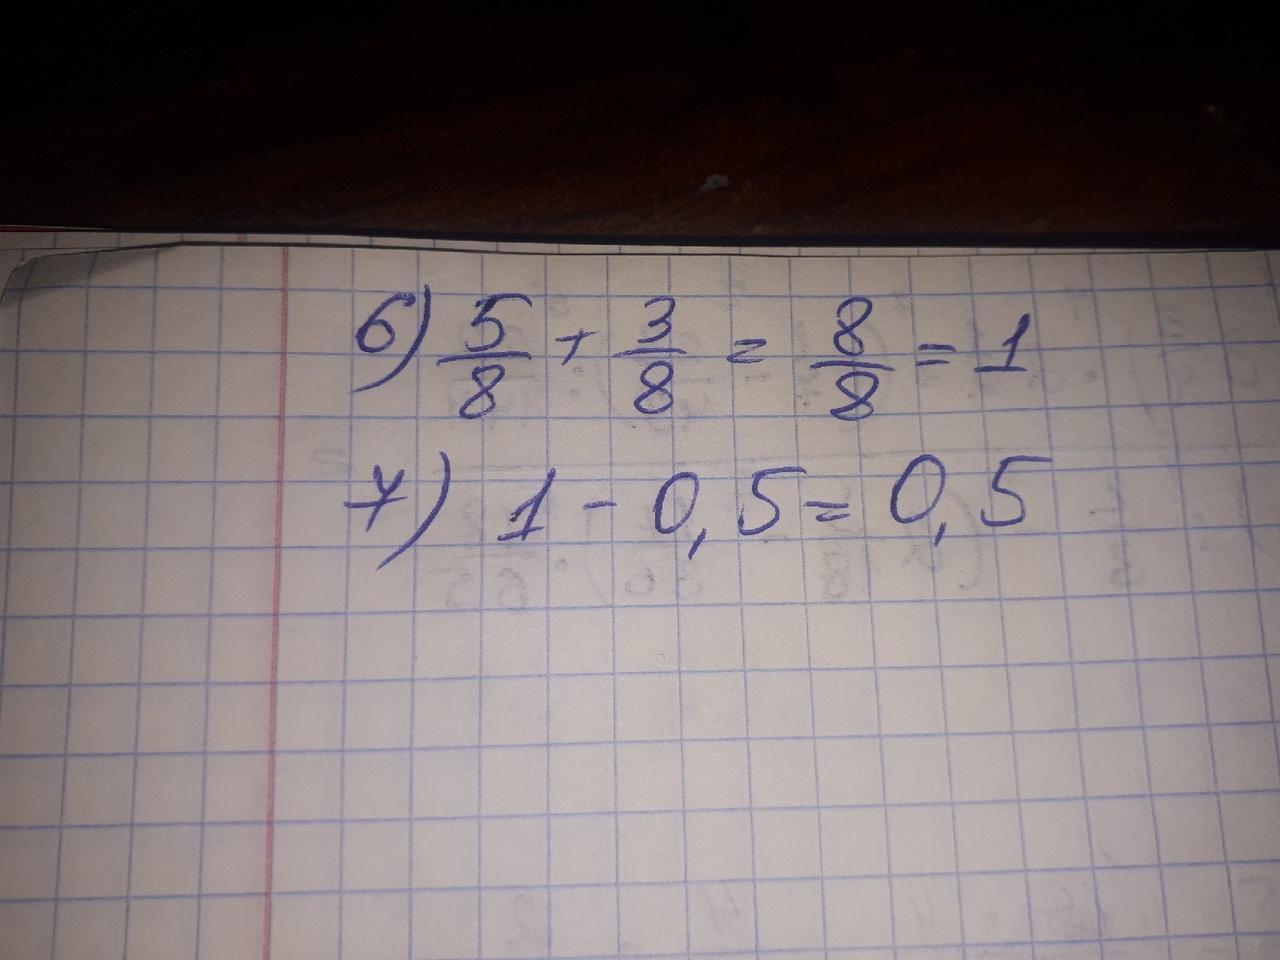 6) 5/8 + 3/8 = 8/8 = 1
7) 1 - 0,5 = 0,5